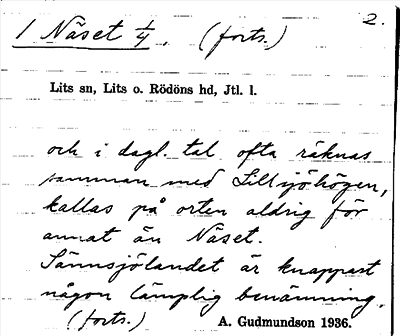 2.
1 Näset 1/4. (forts.)
Lits sn, Lits o. Rödöns hd, Jtl. l.
och i dagl. tal ofta räknas
samman med Lillsjöhögen,
kallas på orten aldrig för
annat än Näset.
Sännsjölandet är knappast
någon lämplig benämning.
(forts.) A. Gudmundson 1936.